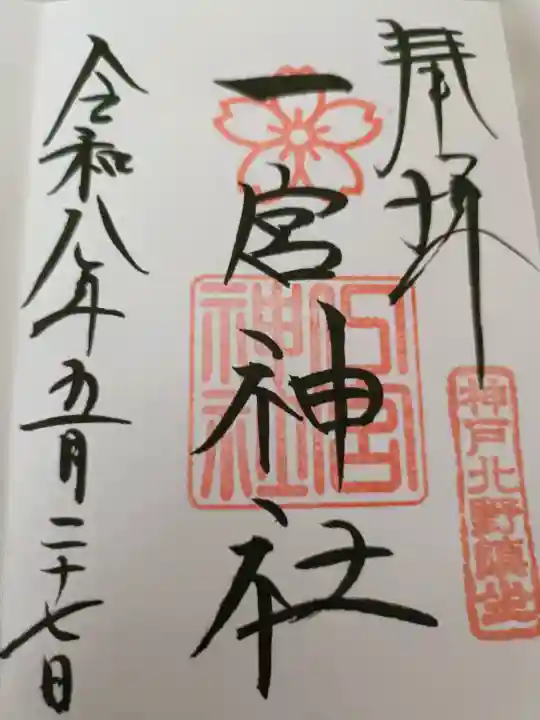 奉拝
神戸北野鎮坐
一宮神社
一宮神社
令和八年五月二十七日